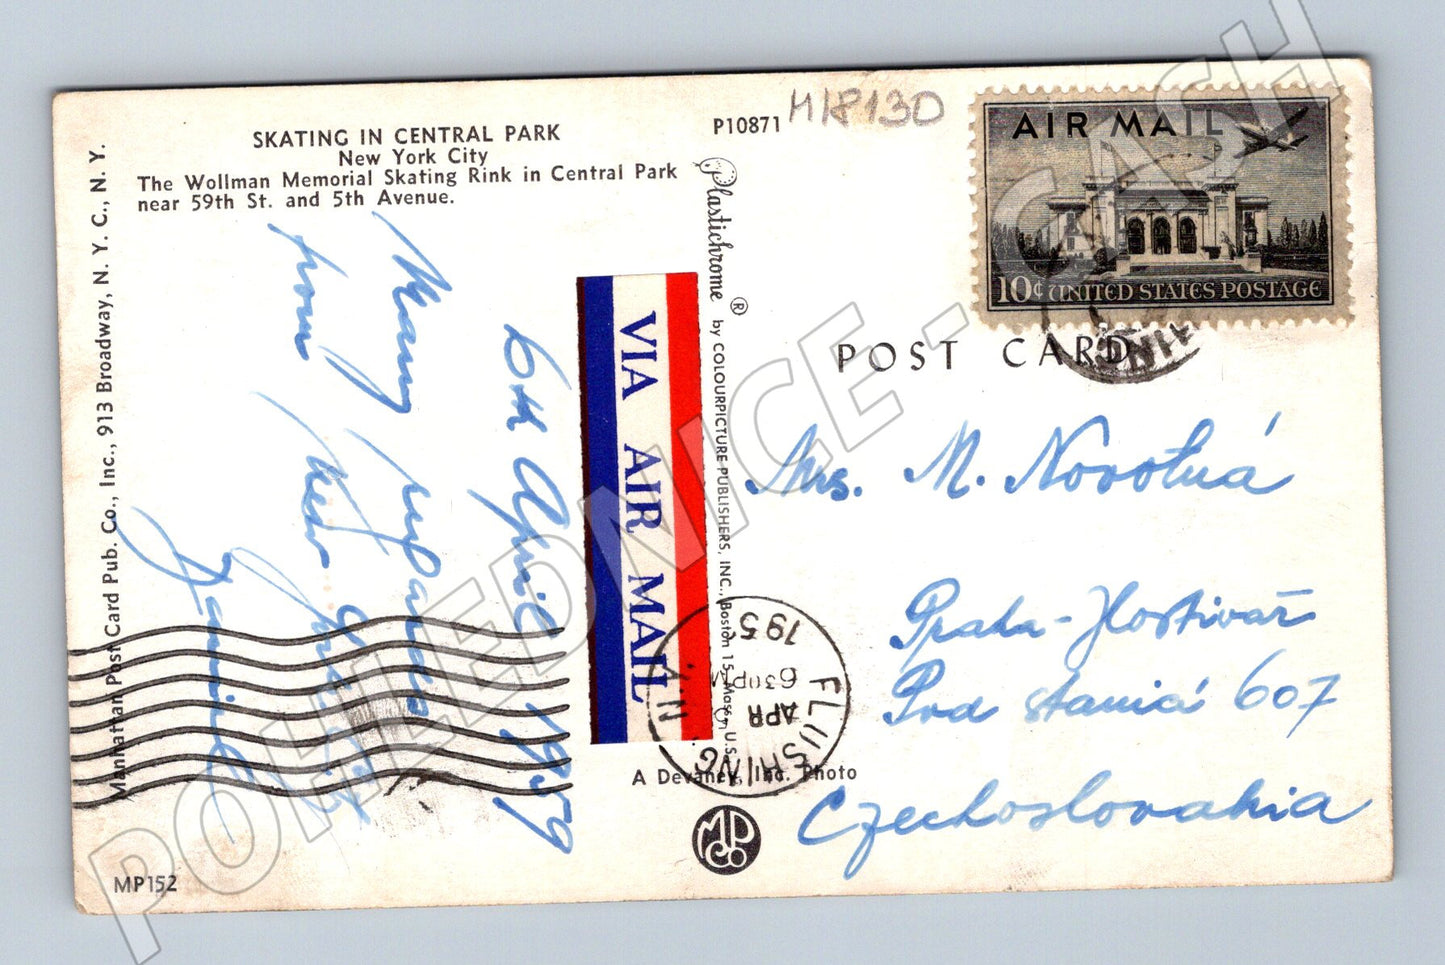 SKATING IN CENTRAL PARK
New York City
The Wollman Memorial Skating Rink in Central Park
near 59th St. and 5th Avenue.
P10871
M18130
AIR MAIL
10¢ UNITED STATES POSTAGE
POST CARD
Manhattan Post Card Pub. Co., Inc., 913 Broadway, N. Y. C., N. Y.
Plastichrome ® by COLOURPICTURE PUBLISHERS, INC., Boston 15, Mass., U.S.
VIA AIR MAIL
6th April 1959
Many
from New
FLUSHING
N.Y.
APR
630PM
195
Mrs. M. Novotná
Praha-Hostivař
Pod stanicí 607
Czechoslovakia
A Devaney, Inc. Photo
MP Co
MP152
POHLEDNICE - CASH